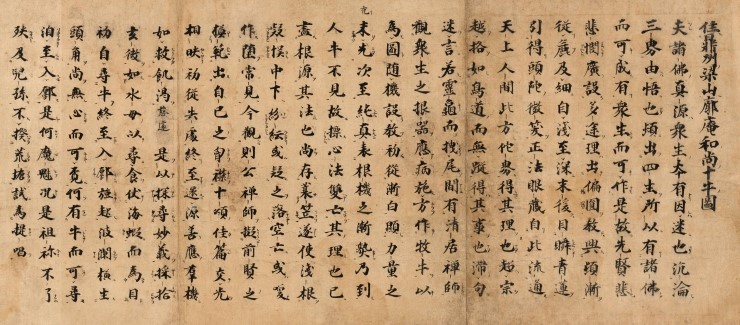 住鼎州梁山廓庵和尚十牛圖
夫諸佛真源衆生本有因迷也沉淪
三界由悟也頓出四生所以有諸佛
而可成有衆生而可作是故先賢悲
憫廣設多途理出偏圓教興頓漸
從麁及細自淺至深末後目瞬青蓮
引得頭陀微笑正法眼藏自此流通
天上人間此方他界得其理也超宗
越格如鳥道而無蹤得其事也滯句
迷言若靈龜而曳尾間有清居禪師
觀衆生之根器應病施方作牧牛以
為圖隨機設教初從漸白顯力量之
未充次至純真表根機之漸熟乃到
人牛不見故標心法雙亡其理也已
盡根源其法也尚存蓑笠遂使淺根
疑悮中下紛紜或疑之落空亡或喚
作墮常見今觀則公禪師擬前賢之
模範出自己之胸襟十頌佳篇交光
相映初從失處終至還源善應羣機
如救飢渴慈遠是以探尋妙義採拾
玄微如水母以尋飡依海蝦而為目
初自尋牛終至入鄽強起波瀾橫生
頭角尚無心而可覓何有牛而可尋
洎至入鄽是何魔魅況是祖祢不了
殃及兒孫不揆荒唐試為提唱